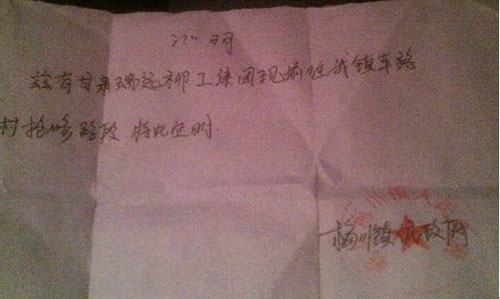 证明
兹有甘肃瑞远柳工集团现前往我镇车路
村抢修路段 特此证明
梅川镇人民政府